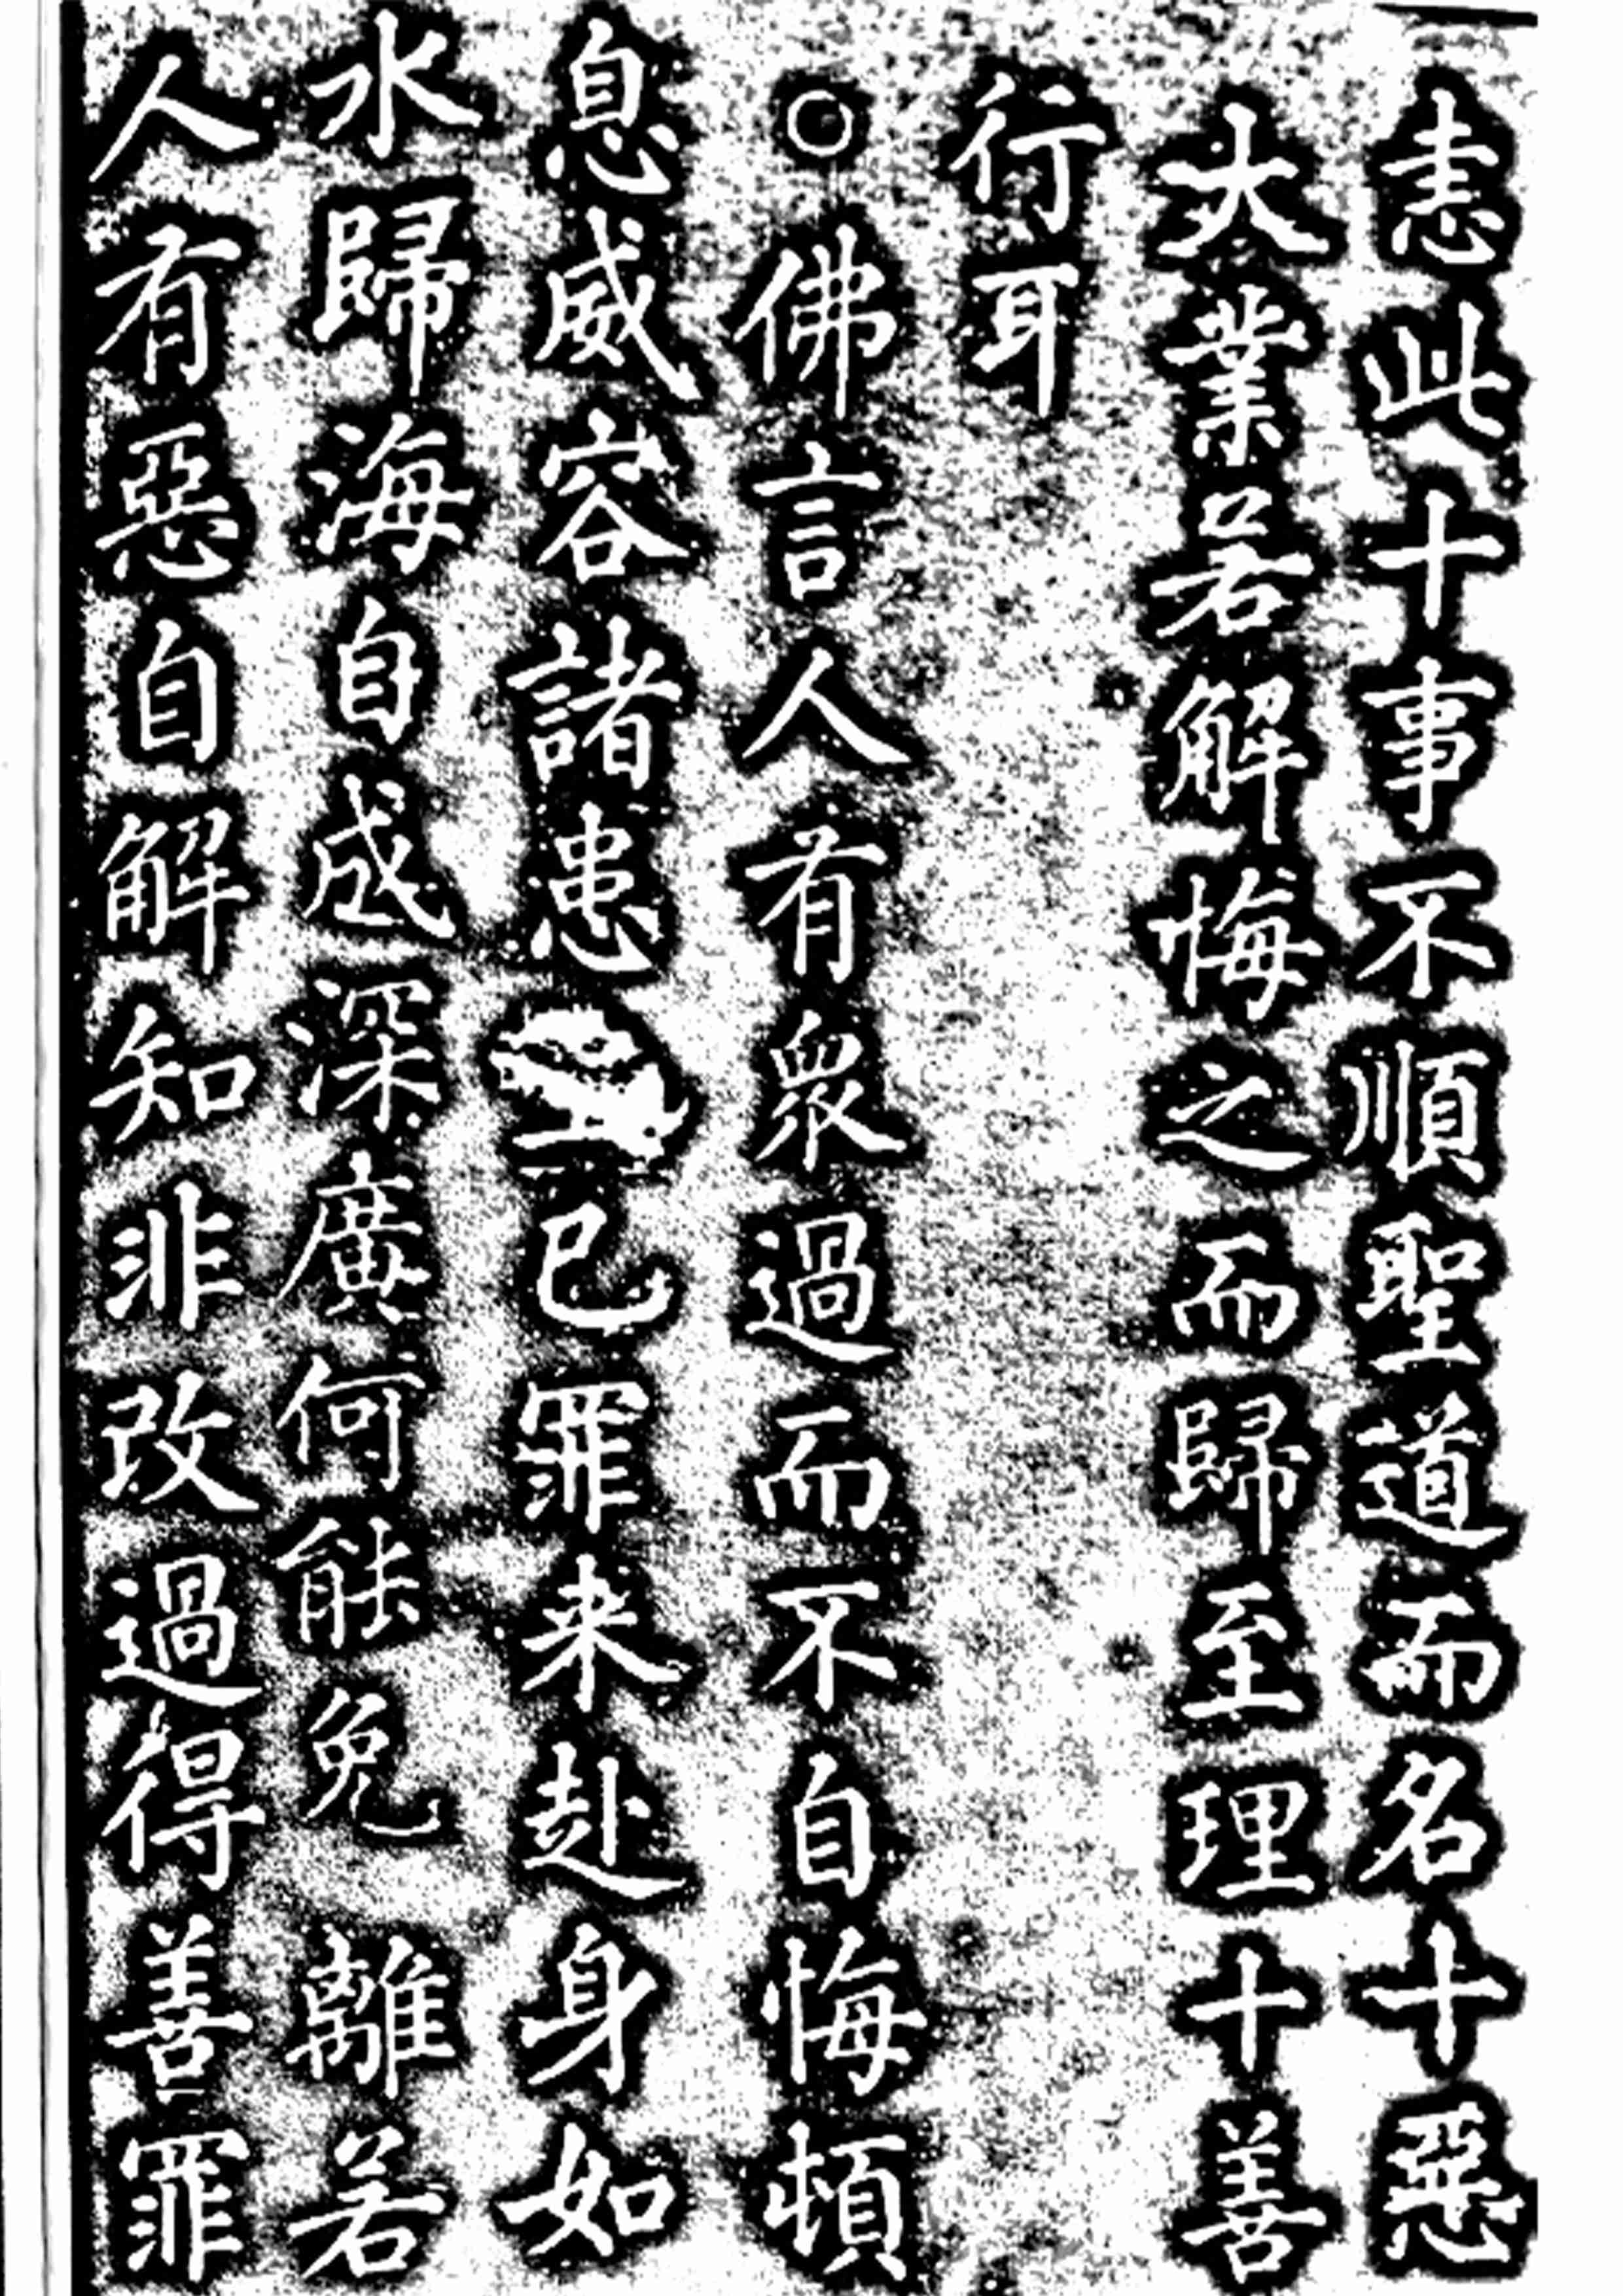 恚此十事不順聖道而名十惡
大業若解悔之而歸至理十善
行耳
○佛言人有衆過而不自悔頓
息威容諸患已罪来赴身如
水歸海自成深廣何能免離若
人有惡自解知非改過得善罪